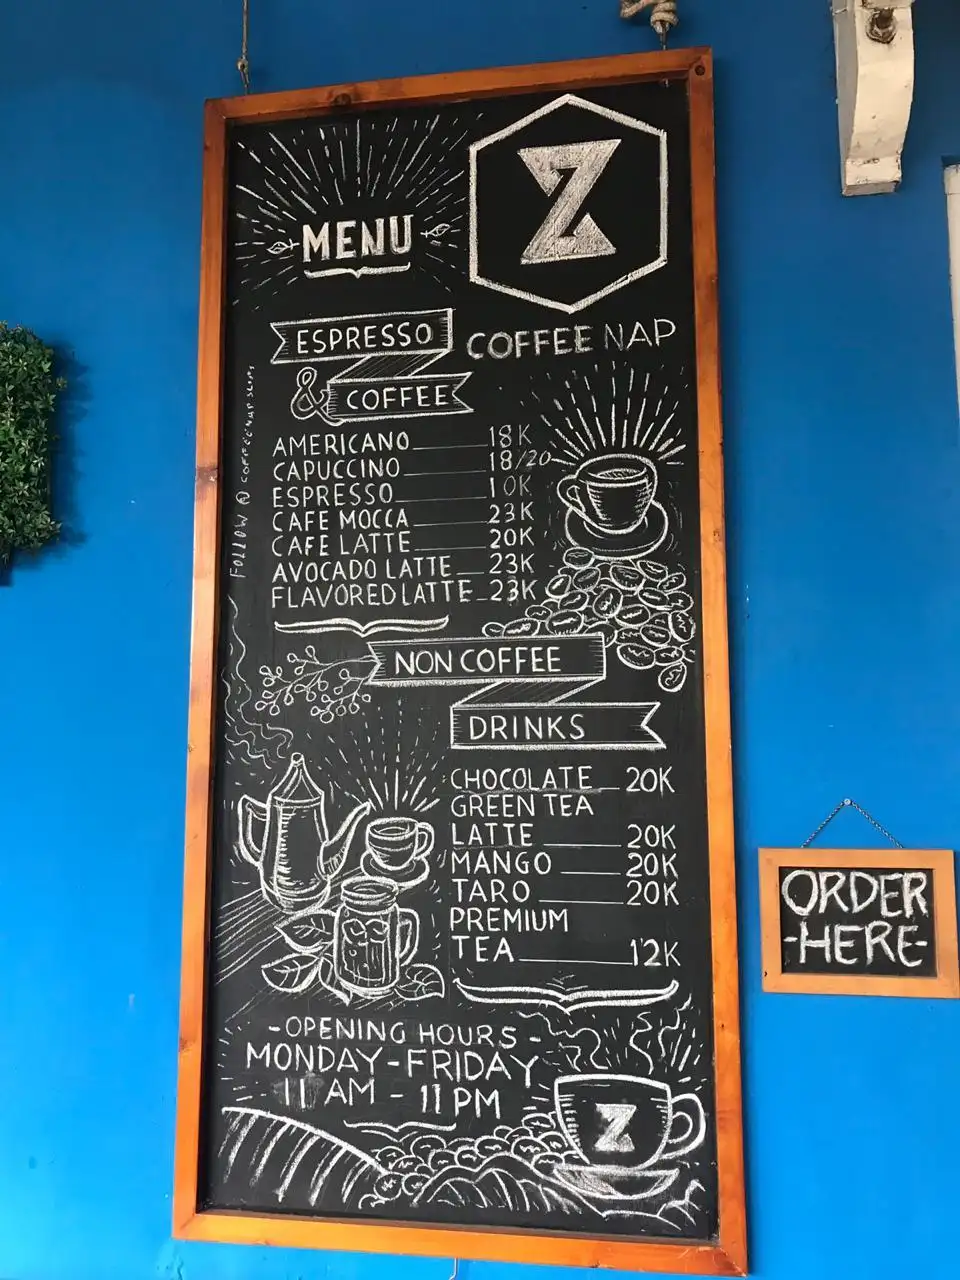 MENU
Z
COFFEE NAP
ESPRESSO
& COFFEE
AMERICANO 18K
CAPUCCINO 18/20
ESPRESSO 10K
CAFE MOCCA 23K
CAFE LATTE 20K
AVOCADO LATTE 23K
FLAVORED LATTE 23K
FOLLOW @ COFFEENAP
NON COFFEE
DRINKS
CHOCOLATE 20K
GREEN TEA
LATTE 20K
MANGO 20K
TARO 20K
PREMIUM
TEA 12K
-OPENING HOURS-
MONDAY-FRIDAY
11 AM - 11 PM
Z
ORDER
-HERE-